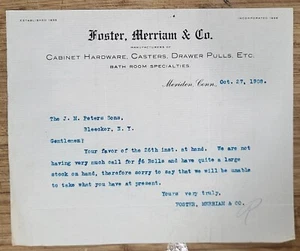 ESTABLISHED 1866
INCORPORATED 1898
Foster, Merriam & Co.
MANUFACTURERS OF
CABINET HARDWARE, CASTERS, DRAWER PULLS, ETC.
BATH ROOM SPECIALTIES
Meriden, Conn., Oct. 27, 1908.
The J. M. Peters Sons,
Bleecker, N. Y.
Gentlemen:
Your favor of the 26th inst. at hand. We are not
having very much call for #4 Rolls and have quite a large
stock on hand, therefore sorry to say that we will be unable
to take what you have at present.
Yours very truly,
FOSTER, MERRIAM & CO.